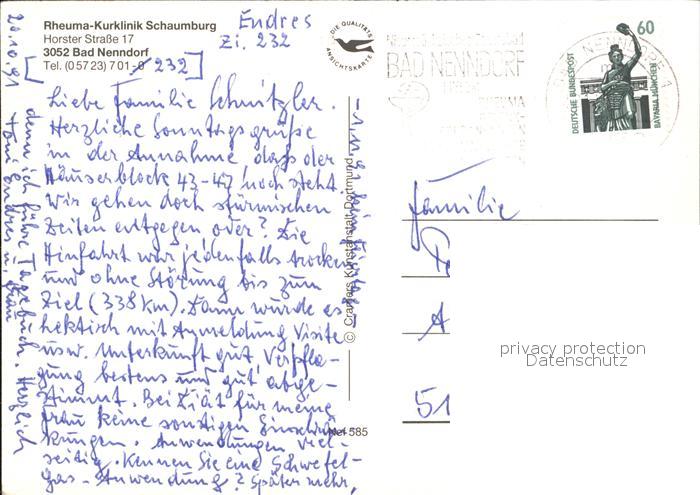 20.10.91
Rheuma-Kurklinik Schaumburg
Horster Straße 17
3052 Bad Nenndorf
Tel. (05723) 701-0
[232]
Endres
Zi. 232
Liebe Familie Schnitzler.
Herzliche Sonntagsgrüße
in der Annahme, dass der
Häuserblock 43-47 noch steht.
Wir gehen doch stürmischen
Zeiten entgegen oder? Die
Hinfahrt war jedenfalls trocken
und ohne Störung bis zum
Ziel (338 km). Dann wurde es
hektisch mit Anmeldung, Visite
usw. Unterkunft gut, Verpfle-
gung bestens und gut abge-
stimmt. Bei Diät für meine
Frau keine sonstigen Einschrän-
kungen. Anwendungen viel-
seitig. Kennen Sie eine Schwefel-
gas-Anwendung? Später mehr,
denn ich führe Tagebuch. Herzlich
Toni Endres u. Frau
DIE QUALITÄTS
ANSICHTSKARTE
© Cramers Kunstanstalt, Dortmund
585
BAD NENNDORF
DEUTSCHE BUNDESPOST
60
BAVARIA MÜNCHEN
Familie
51
privacy protection
Datenschutz